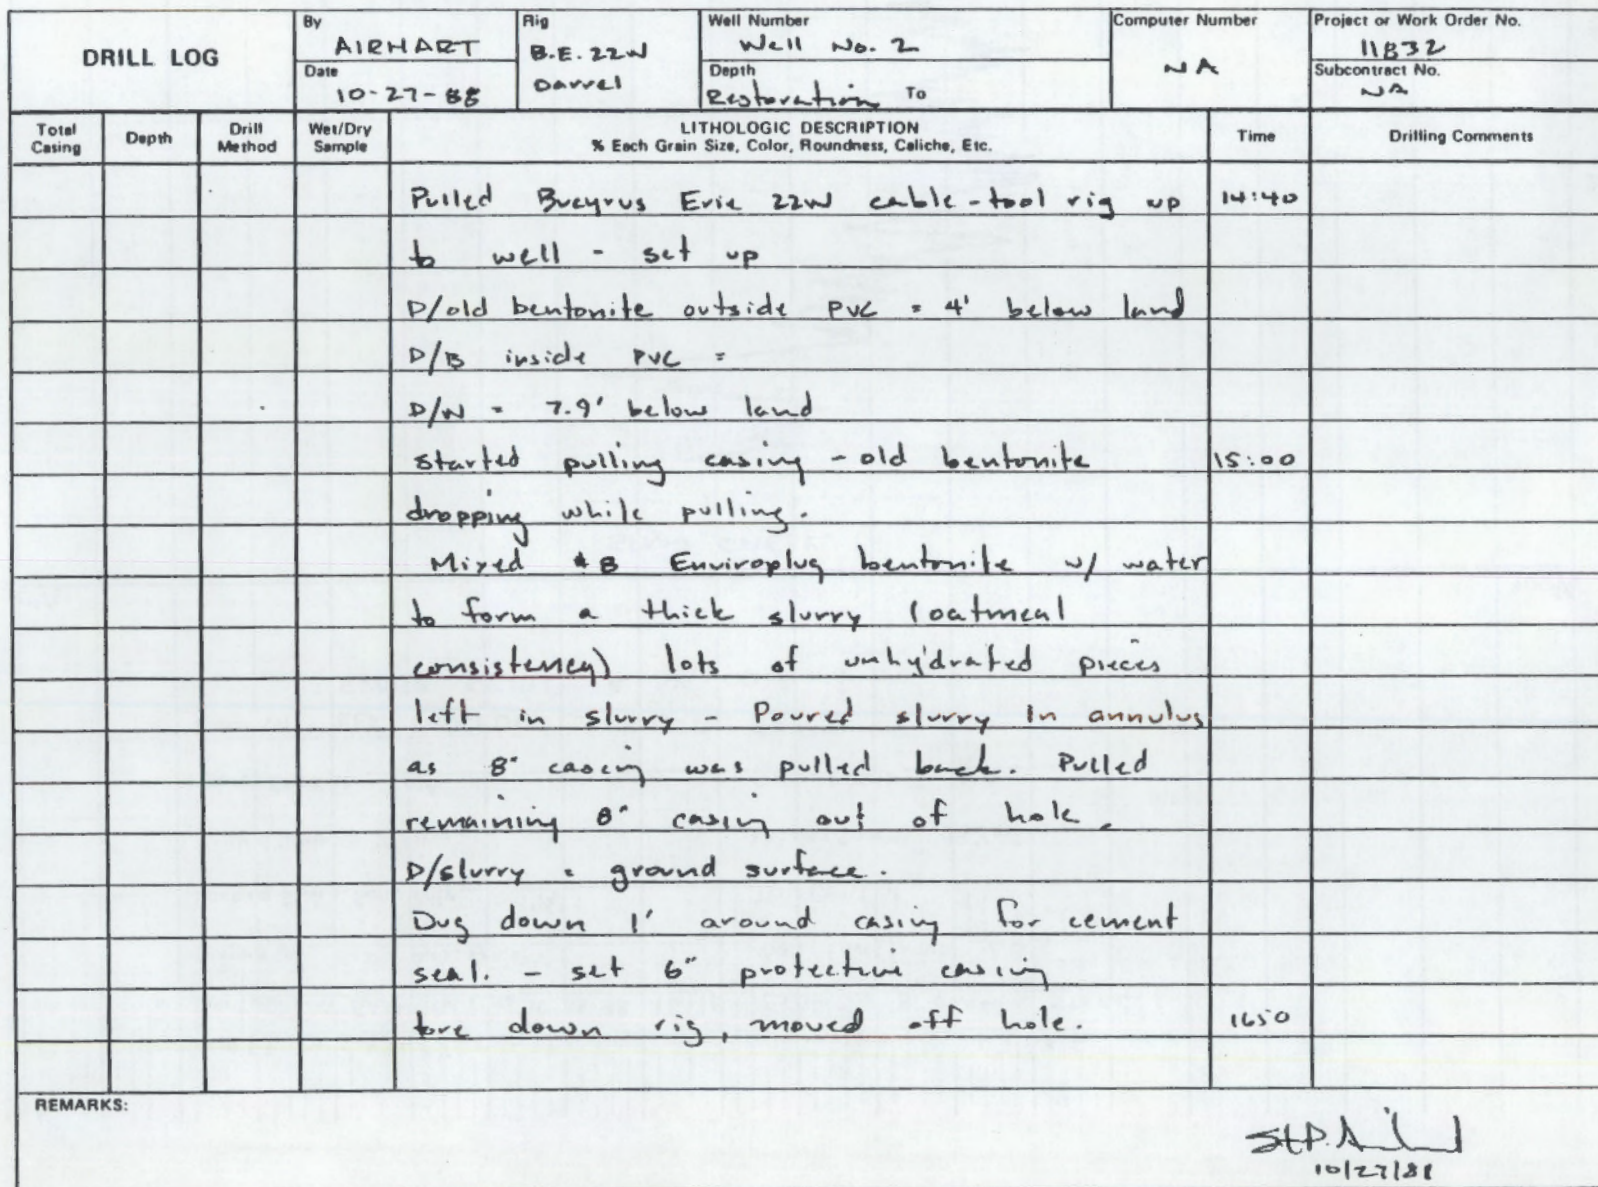 DRILL LOG
By
AIRHART
Date
10-27-88
Rig
B.E. 22W
Darrel
Well Number
Well No. 2
Depth
Restoration To
Computer Number
NA
Project or Work Order No.
11832
Subcontract No.
NA
Total Casing
Depth
Drill Method
Wet/Dry Sample
LITHOLOGIC DESCRIPTION
% Each Grain Size, Color, Roundness, Caliche, Etc.
Time
Drilling Comments
Pulled Bucyrus Erie 22W cable-tool rig up 14:40
to well - set up
D/old bentonite outside PVC = 4' below land
D/B inside PVC =
D/W = 7.9' below land
Started pulling casing - old bentonite 15:00
dropping while pulling.
Mixed #8 Enviroplug bentonite w/ water
to form a thick slurry (oatmeal
consistency) lots of unhydrated pieces
left in slurry - Poured slurry in annulus
as 8" casing was pulled back. Pulled
remaining 8" casing out of hole.
D/slurry = ground surface.
Dug down 1' around casing for cement
seal. - set 6" protective casing
tore down rig, moved off hole. 1650
REMARKS:
10/27/88